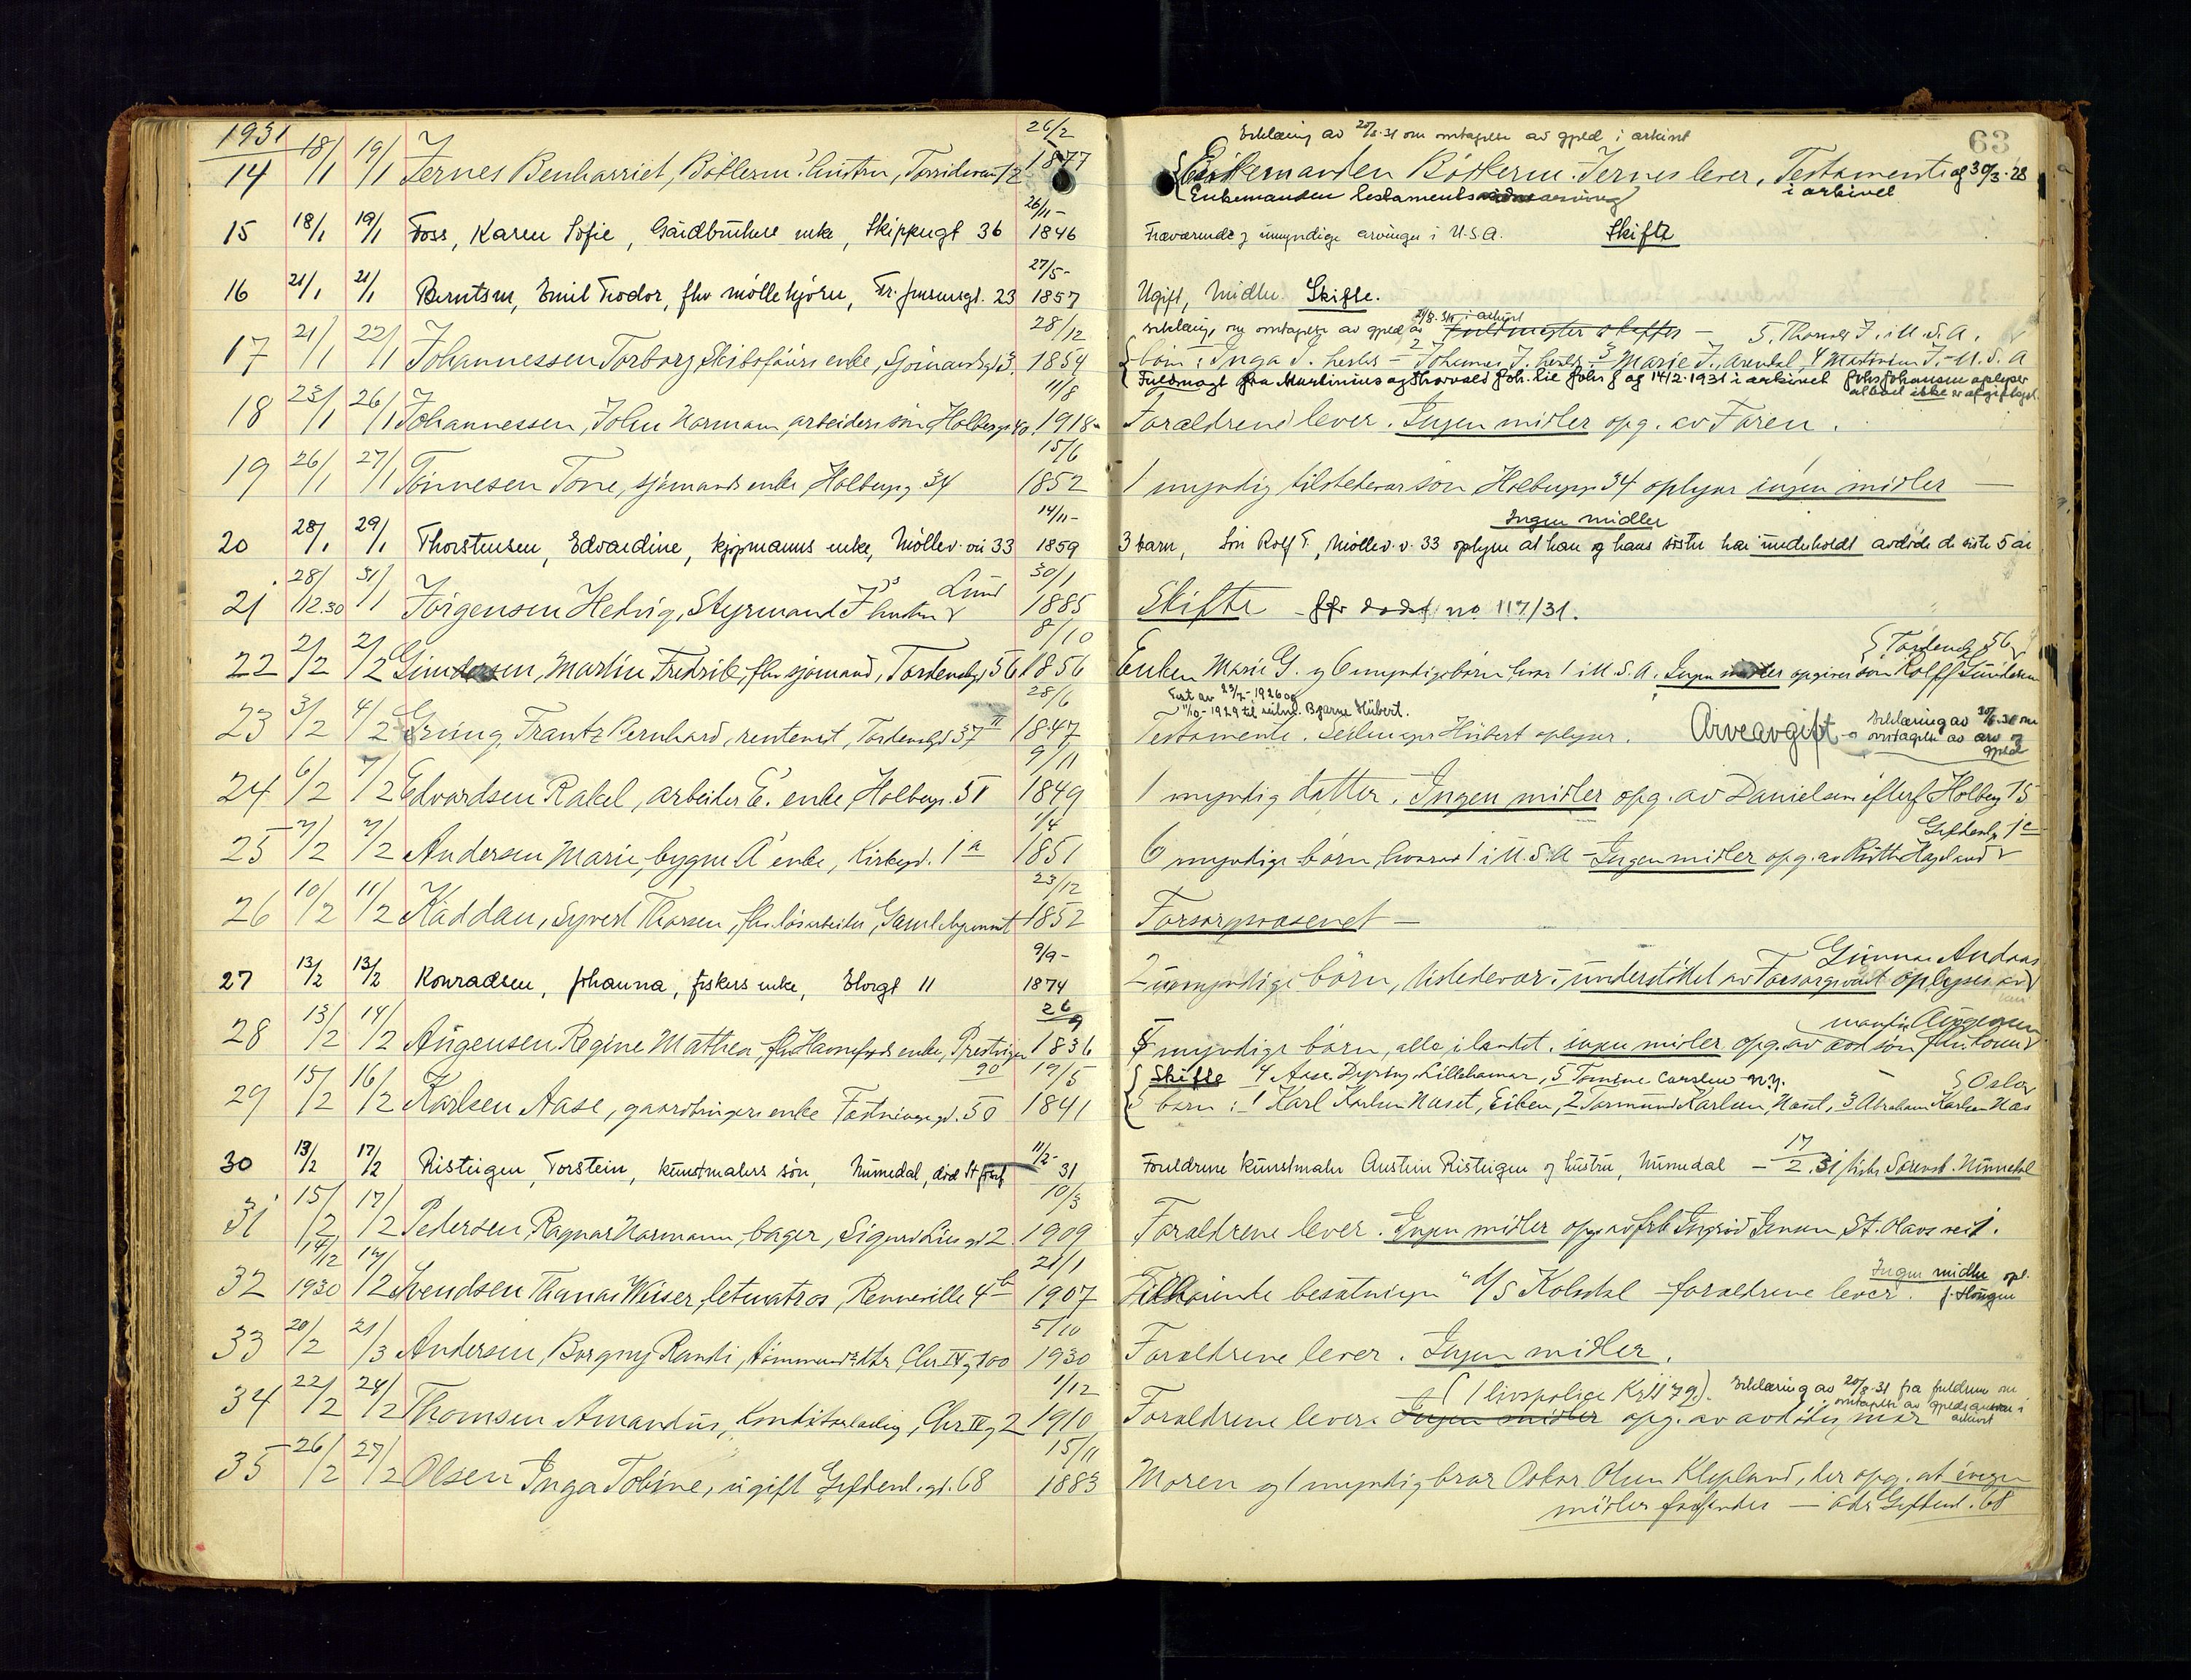 1931
63
Erklæring av 20/8.31 om overtagelse av gjeld i arkivet
14 18/1 19/1 Jernes Benharriet, Bökterm. J's hustru, 26/2 1877 Enkemanden Böкterm. Jernes lever, Testamente af 30/3-28 i arkivet
Enkemanden testaments arving
15 18/1 19/1 Foss, Karen Sofie, Gårdbrukers enke, Skippergt 36 26/11- 1846 Fraværende og umyndige arvinger i U.S.A. Skifte
16 21/1 21/1 Berntsen, Emil Teodor, fhv möllekjörer, 23 27/5- 1857 Ugift, Midler Skifte.
17 21/1 22/1 Johannessen Torborg, Skibsförers enke, 28/12 1854 Erklæring om overtagelse av gjeld av i arkivet 5, Thorvald J. i U.S.A.
börn: 1 Inga J. herbs - 2 Johannes J. herbs 3 Marie J., Arendal, 4 Martinius J. - U.S.A
Fuldmagt fra Martinius og Thorvald Joh. til Johs J af 14/2-1931 i arkivet Johs Johansen oplyser at boet ikke er afgiftspl.
18 23/1 26/1 Johannessen, John Normann, arbeiders sön, Holbergs 40 11/8 1918 Forældrene lever. Ingen midler opg. av Faren.
19 26/1 27/1 Tönnesen Tone, sjömands enke, Holbergsg 34 15/6 1852 1 myndig tilstedevær. sön Holbergsg. 34 oplyser ingen midler -
20 28/1 29/1 Thorstensen, Edvardine, kjøpmanns enke, Möllev. 33 14/11- 1859 3 barn, Sön Rolf T, Möllev. v. 33 oplyser at han og hans söster har underholdt avdöde de siste 5 år
Ingen midler
21 28/12.30 31/1 Jörgensen Hedvig, Styrmand J's hustru Lund 30/1 1885 Skifte - jfr dodsf no 117/31.
22 2/2 2/2 Gundersen, Martin Fredrik, fhv sjömand, Tordenskjg 56 8/10 1856 Enken Marie G. og 6 myndige börn hvor 1 i U.S.A. Ingen midler opgiver sön Rolf Gundersen Tordenskj 56
23 3/2 4/2 Grüng, Frantz Bernhard, rentenist, Tordenskjg 37 II 28/6 1847 Test av 23/7-1926 og 11/10-1929 til Bjarne Hübert.
Testamente. Hübert oplyser. Arveavgift - Erklæring av 20/6.31 om overtagelse av arv og gjeld
24 6/2 7/2 Edvardsen Rakel, arbeider E's enke, Holbergs. 51 9/11 1849 1 myndig datter. Ingen midler opg. av Danielsen efterf Holbergs 15
25 7/2 7/2 Andersen Marie, bygm A's enke, Kirkegd. 1 a 1/4 1851 6 myndige börn, hvorav 1 i U.S.A - Ingen midler opg. av Ruth Hagelund Gyldenl. 1c
26 10/2 11/2 Kåddan, Syvert Thorsen, fhv. lösarbeider, Gamlehjemmet 23/12 1852 Forsorgsvæsenet -
27 13/2 13/2 Konradsen, Johanna, fiskers enke, Elvegt 11 9/9- 1874 2 umyndige börn, tilstedevær. understöttet av Forsorgsvæst oplyses av Gunnar Andaas
28 13/2 14/2 Augensen Regine Mathea, fhv Havnefogds enke, 26/9 1836 5 myndige börn, alle i landet. ingen midler opg. av Augensen
29 15/2 16/2 Karlsen Aase, gaardbrugers enke Fæstningsgd. 50 19/5 1841 Skifte 4 Aase Dyring, Lillehamar, 5 Tomine Carslen N.Y. Oslo
börn: 1 Karl Karlsen Naset, Eiken, 2 Tormund Karlsen, Naset, 3 Abraham Karlsen Næs
30 13/2 17/2 Risteigen, Torstein, kunstmalers sön, Numedal, död St Josef 11/2- 31 Foreldrene kunstmaler Austein Risteigen og hustru, Numedal - 17/2.31 Sorensk. Numedal
31 15/2 17/2 Pedersen, Ragnar Normann, bager, Sigurd Lies gd 2 10/3 1909 Forældrene lever. Ingen midler opg. av frk Ingrid Jensen St. Olavs vei 1.
32 14/12 1930 17/2 Svendsen Thomas Weiser, letmatros, Renneville 4 b 21/1 1907 Tilhörende besætningen d/s Kolsdal - forældrene lever. Ingen midler opl.
33 20/2 21/3 Andersen, Borgny Randi, tömmermands dtr Chr. IV g 100 5/10 1930 Forældrene lever. Ingen midler.
34 22/2 24/2 Thomsen Amandus, Konditorlærling, Chr. IV g 2 1/12 1910 (1 livspolice Kr. ). Erklæring av 20/8-31 fra foreldrene om overtagelse av gjeldsansvar i arkivet
Forældrene lever. Ingen midler opg. av avdödes mor
35 26/2 27/2 Olsen Inga Tobine, ugift Gyldenl. gd. 68 15/11 1883 Moren og 1 myndig bror Oskar Olsen Klepland, der opg. at ingen
midler forefindes - adr. Gyldenl. 68